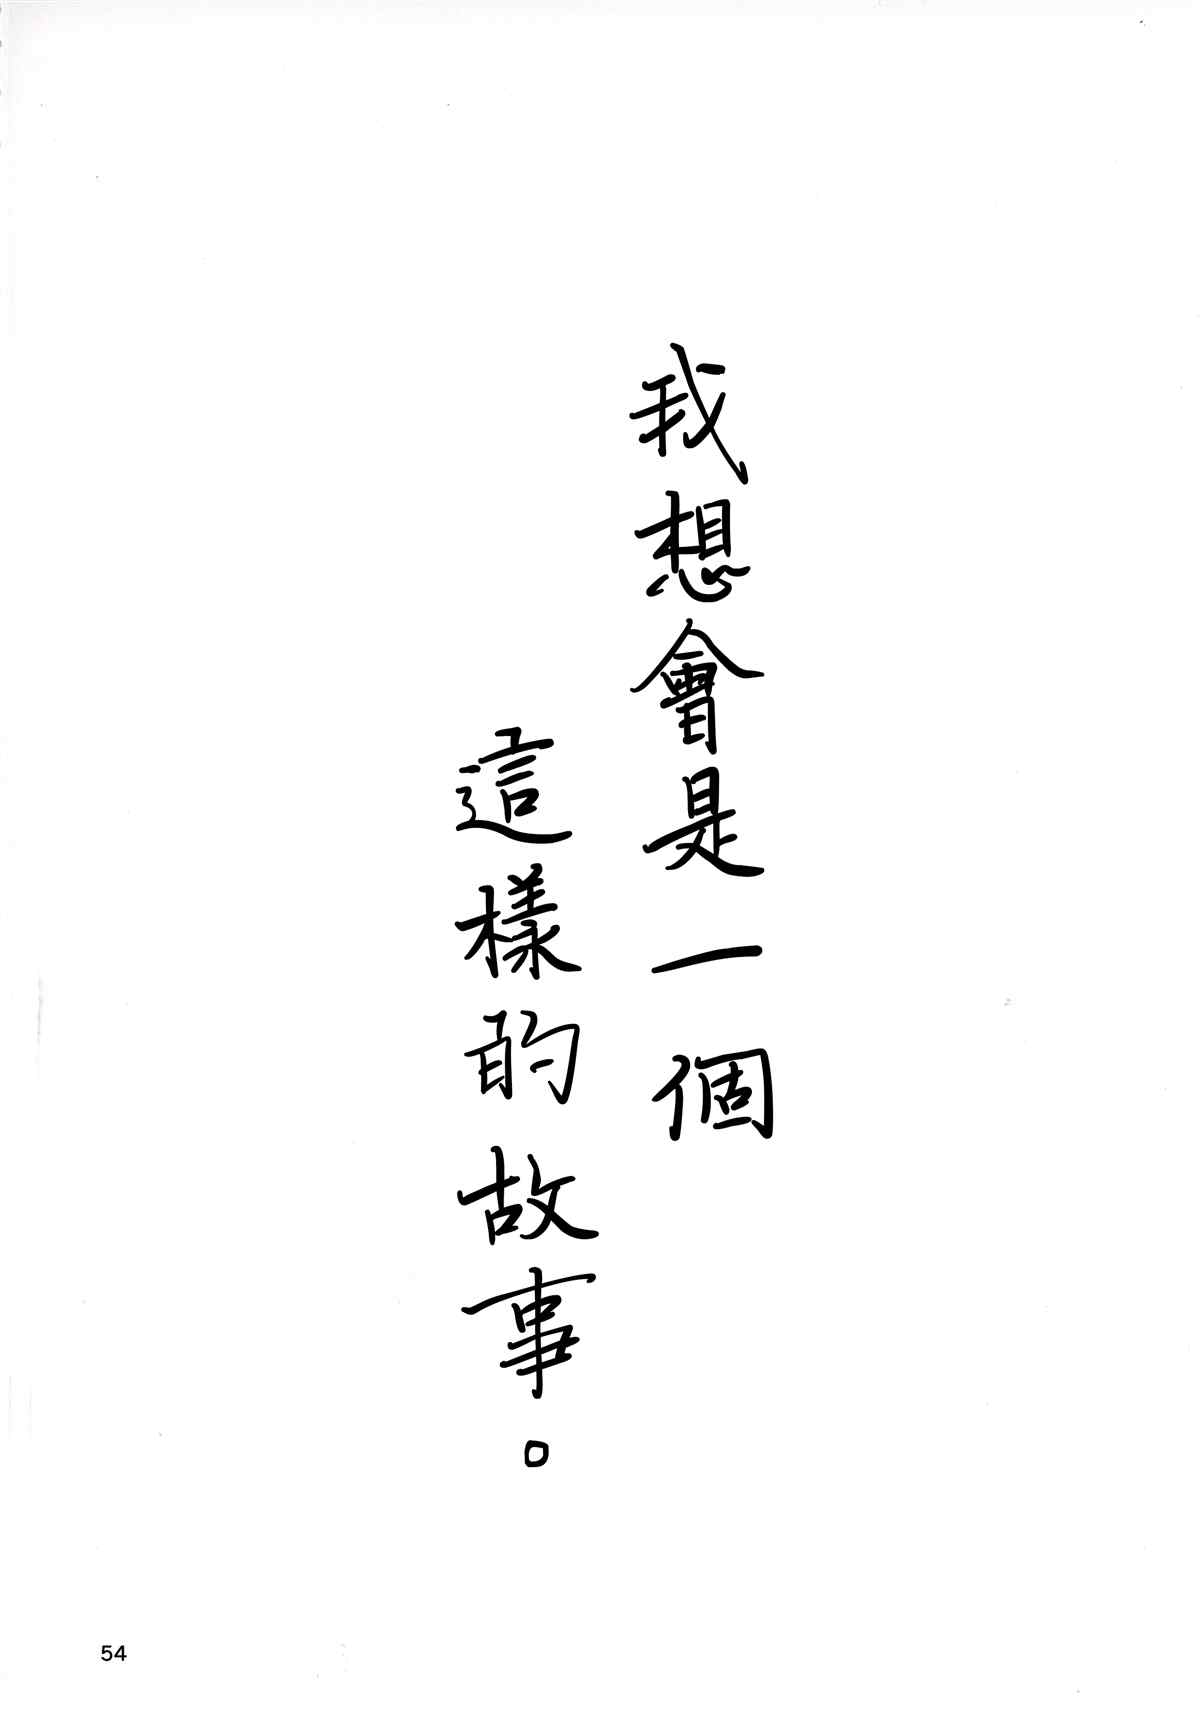 我想會是一個
這樣的故事。
54